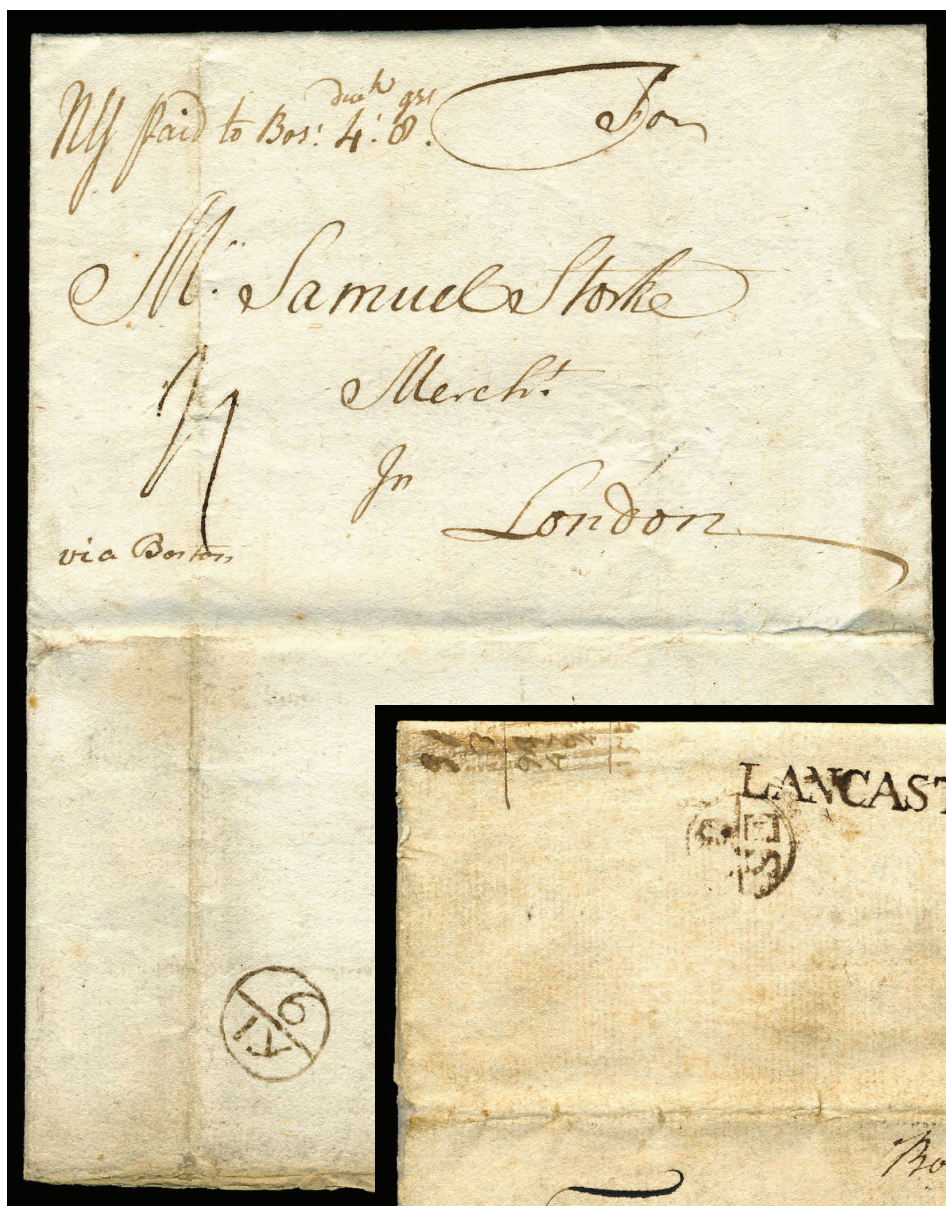 NY paid to Bos: 4: 8. For
Mr. Samuel Storke
Mercht.
In
London
via Boston
6
IY
LANCAST
SE
Bo